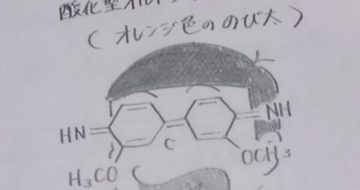 酸化型オルト
(オレンジ色ののび太)
HN
NH
C
H₃CO
OCH₃